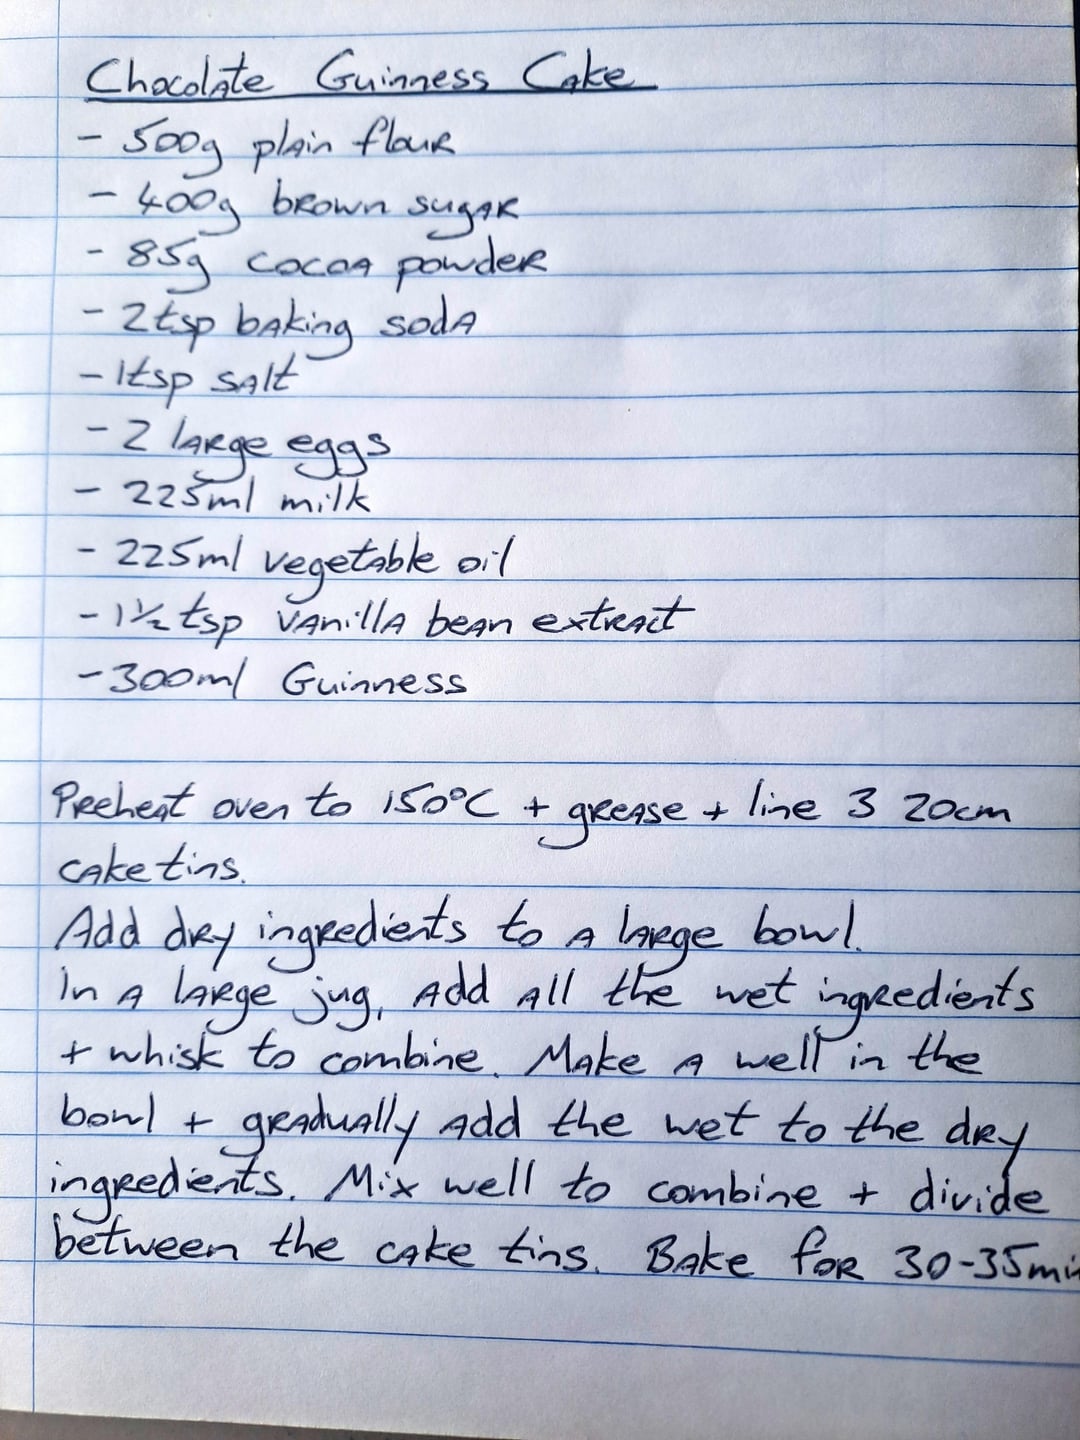 Chocolate Guinness Cake
- 500g plain flour
- 400g brown sugar
- 85g cocoa powder
- 2tsp baking soda
- 1tsp salt
- 2 large eggs
- 225ml milk
- 225ml vegetable oil
- 1½ tsp vanilla bean extract
- 300ml Guinness
Preheat oven to 150°C + grease + line 3 20cm
cake tins.
Add dry ingredients to a large bowl.
In a large jug, add all the wet ingredients
+ whisk to combine. Make a well in the
bowl + gradually add the wet to the dry
ingredients. Mix well to combine + divide
between the cake tins. Bake for 30-35min